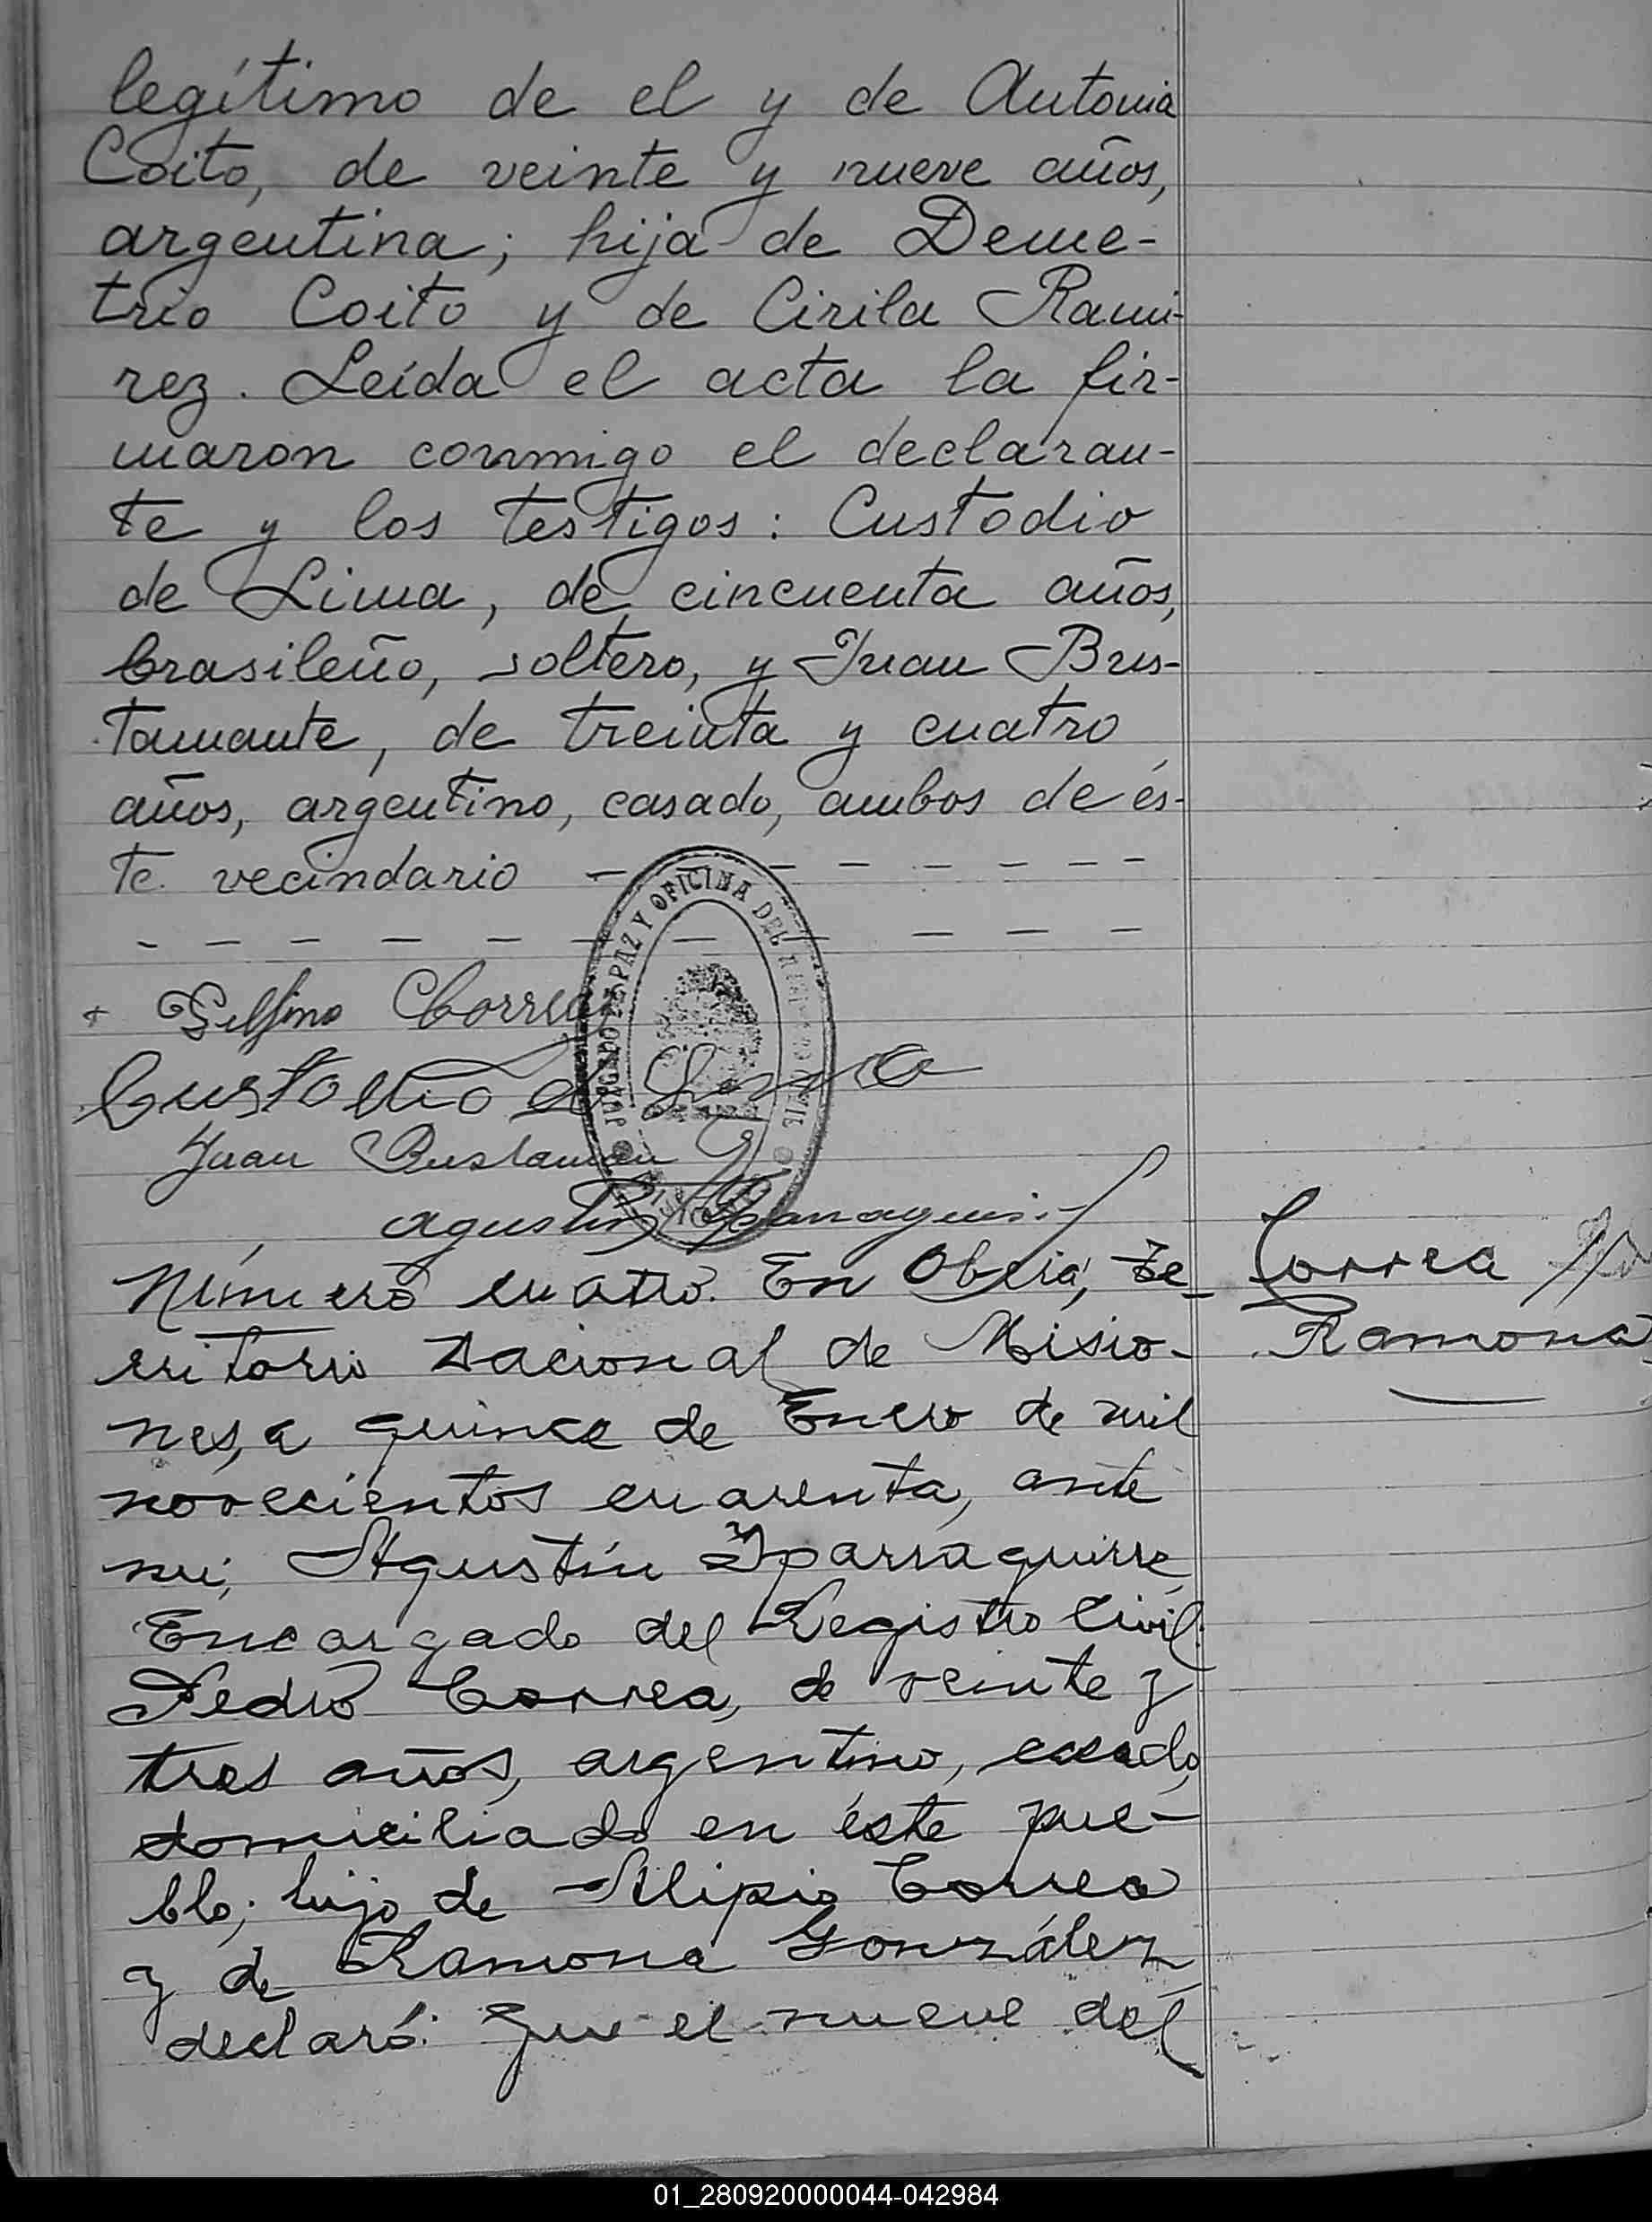 legítimo de el y de Antonia
Coito, de veinte y nueve años,
argentina; hija de Deme-
trio Coito y de Cirila Rami-
rez. Leída el acta la fir-
maron conmigo el declaran-
te y los testigos: Custodio
de Lima, de cincuenta años,
brasileño, soltero, y Juan Bus-
tamante, de treinta y cuatro
años, argentino, casado, ambos de és-
te vecindario - - - - - - -
- - - - - - - - - - - - -
JUZGADO DE PAZ Y OFICINA DEL REGISTRO CIVIL
MISIONES
+ Delfino Correa
Custodio de Lima
Juan Bustamante
Agustín Yparraguirre
Número cuatro. En Oberá, te-
rritorio Nacional de Misio-
nes, a quince de Enero de mil
novecientos cuarenta, ante
mi, Agustín Yparraguirre,
Encargado del Registro Civil:
Pedro Correa, de veinte y
tres años, argentino, casado,
domiciliado en éste pue-
blo; hijo de Alipio Correa
y de Ramona González
declaró: Que el nueve del
Correa
Ramona
01_280920000044-042984